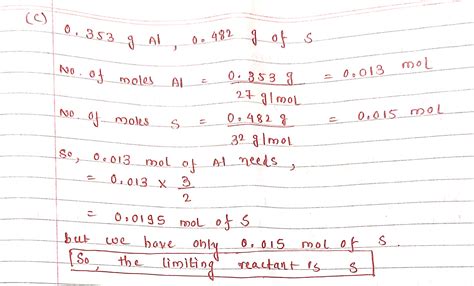 (c)
0.353 g Al , 0.482 g of S
No. of moles Al = 0.353 g / 27 g/mol = 0.013 mol
No of moles S = 0.482 g / 32 g/mol = 0.015 mol
So, 0.013 mol of Al needs,
= 0.013 × 3/2
= 0.0195 mol of S
but we have only 0.015 mol of S.
So, the limiting reactant is S